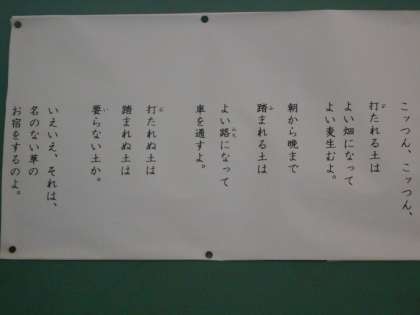 こッつん、こッつん、
打たれる土は
よい畑になって
よい麦生むよ。
朝から晩まで
踏まれる土は
よい路になって
車を通すよ。
打たれぬ土は
踏まれぬ土は
要らない土か。
いえいえ、それは、
名のない草の
お宿をするのよ。